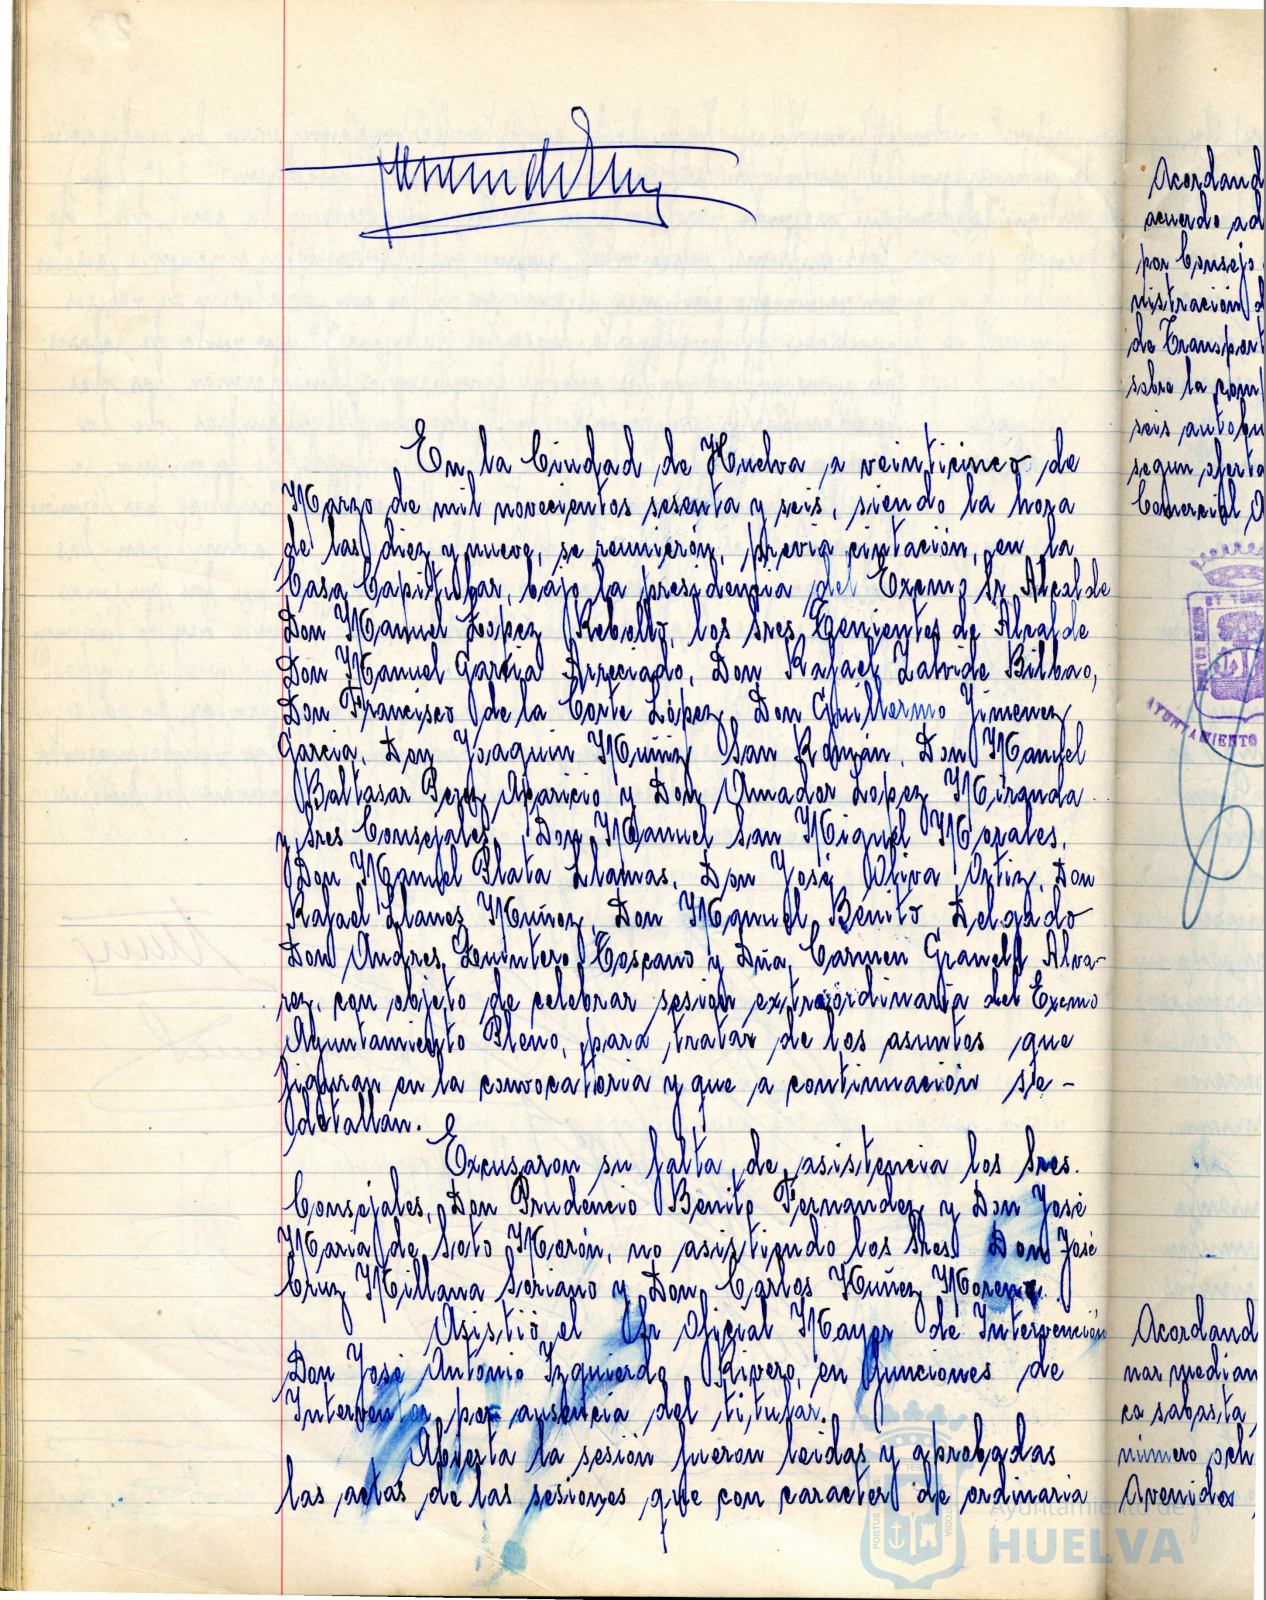 En la Ciudad de Huelva a veinticinco de
Marzo de mil novecientos sesenta y seis, siendo la hora
de las diez y nueve, se reunierón, previa cintación, en la
Casa Capitular, bajo la presidencia del Excmo Sr Alcalde
Don Manuel López Rebollo, los Sres Tenientes de Alcalde
Don Manuel García Arreciado, Don Rafael Zalvide Bilbao,
Don Francisco de la Corte López, Don Guillermo Jimenez
García, Don Joaquin Muñiz San Román, Don Manuel
Baltasar Perez Aparicio y Don Amador Lopez Miranda
y Sres Consejales, Don Manuel San Miguel Morales,
Don Manuel Plata Llamas, Don José Oliva Ortiz, Don
Rafael Llanes Muñoz, Don Manuel Benito Delgado
Don Andres Quintero Toscano y Dña Carmen Granell Alva-
rez, con objeto de celebrar sesion extraordinaria del Excmo
Ayuntamiento Pleno, para tratar de los asuntos que
figuran en la convocatoria y que a continuación se-
detallan.
Excusaron su falta de asistencia los Sres.
Consejales, Don Prudencio Benito Fernandez y Don José
María de Soto Morón, no asistiendo los Sres Don José
Cruz Millana Soriano y Don Carlos Nuñez Moreno.
Asistió el Sr Oficial Mayor de Intervención
Don José Antonio Izquierdo Rivero, en funciones de
Interventor por ausencia del titular.
Abierta la sesión fueron leidas y aprobadas
las actas de las sesiones que con caracter de ordinaria
Acordand
acuerdo ad
por Consejo
nistración d
de Transport
sobre la com
seis autobu
segun oferta
Comercial
AYUNTAMIENTO
Acordand
nar median
ca sabasta
número och
Avenida
Ayuntamiento de
HUELVA